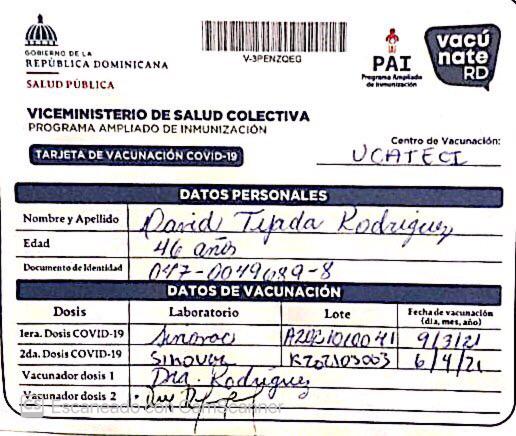 GOBIERNO DE LA
REPÚBLICA DOMINICANA
SALUD PÚBLICA
V-3PENZQEG
PAI
Programa Ampliado
de Inmunización
vacú
nate
RD
VICEMINISTERIO DE SALUD COLECTIVA
PROGRAMA AMPLIADO DE INMUNIZACIÓN
Centro de Vacunación:
UCATECI
TARJETA DE VACUNACIÓN COVID-19
DATOS PERSONALES
Nombre y Apellido David Tejada Rodriguez
Edad 46 años
Documento de Identidad 047-0049689-8
DATOS DE VACUNACIÓN
Dosis Laboratorio Lote Fecha de vacunación
(día, mes, año)
1era. Dosis COVID-19 Sinovac A2021010041 9/3/21
2da. Dosis COVID-19 Sinovac 6/4/21
Vacunador dosis 1 Dra. Rodríguez
Vacunador dosis 2
CS Escaneado con CamScanner